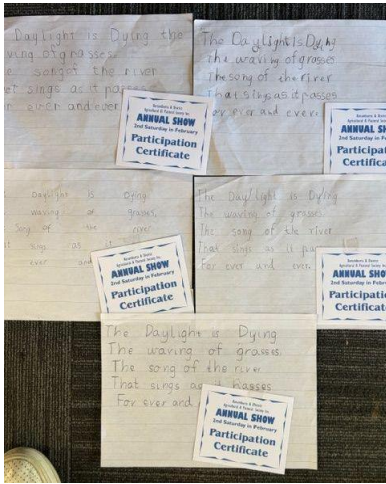 Daylight is Dying the
ving of grasses.
e song of the river
at sings as it passes
or ever and ever
ANNUAL SHOW
2nd Saturday in February
Participation
Certificate
The Daylight Is Dying
The waving of grasses
The song of the river
That sings as it passes
For ever and ever.
ANNUAL SH
2nd Saturday in Febru
Participati
Certifica
Daylight is Dying
waving of grasses,
Song of the river
at sings as it
ever and
ANNUAL SHOW
2nd Saturday in February
Participation
Certificate
The Daylight is Dying
The waving of grasses
The song of the river
That sings as it pa
For ever and ever.
ANNUAL SHO
2nd Saturday in Februa
Participatio
Certificat
The Daylight is Dying
The waving of grasses,
The song of the river
That sings as it passes
For ever and
ANNUAL SHOW
2nd Saturday in February
Participation
Certificate